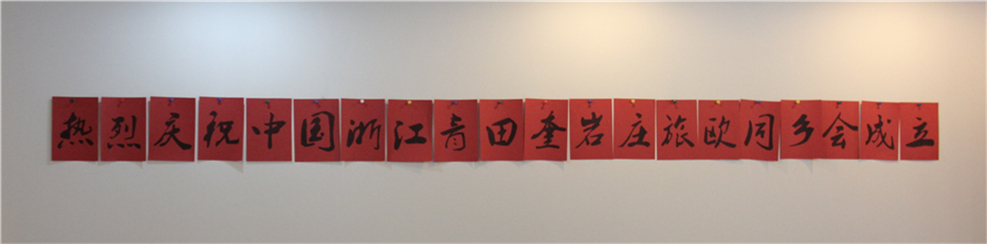 热烈庆祝中国浙江青田奎岩庄旅欧同乡会成立